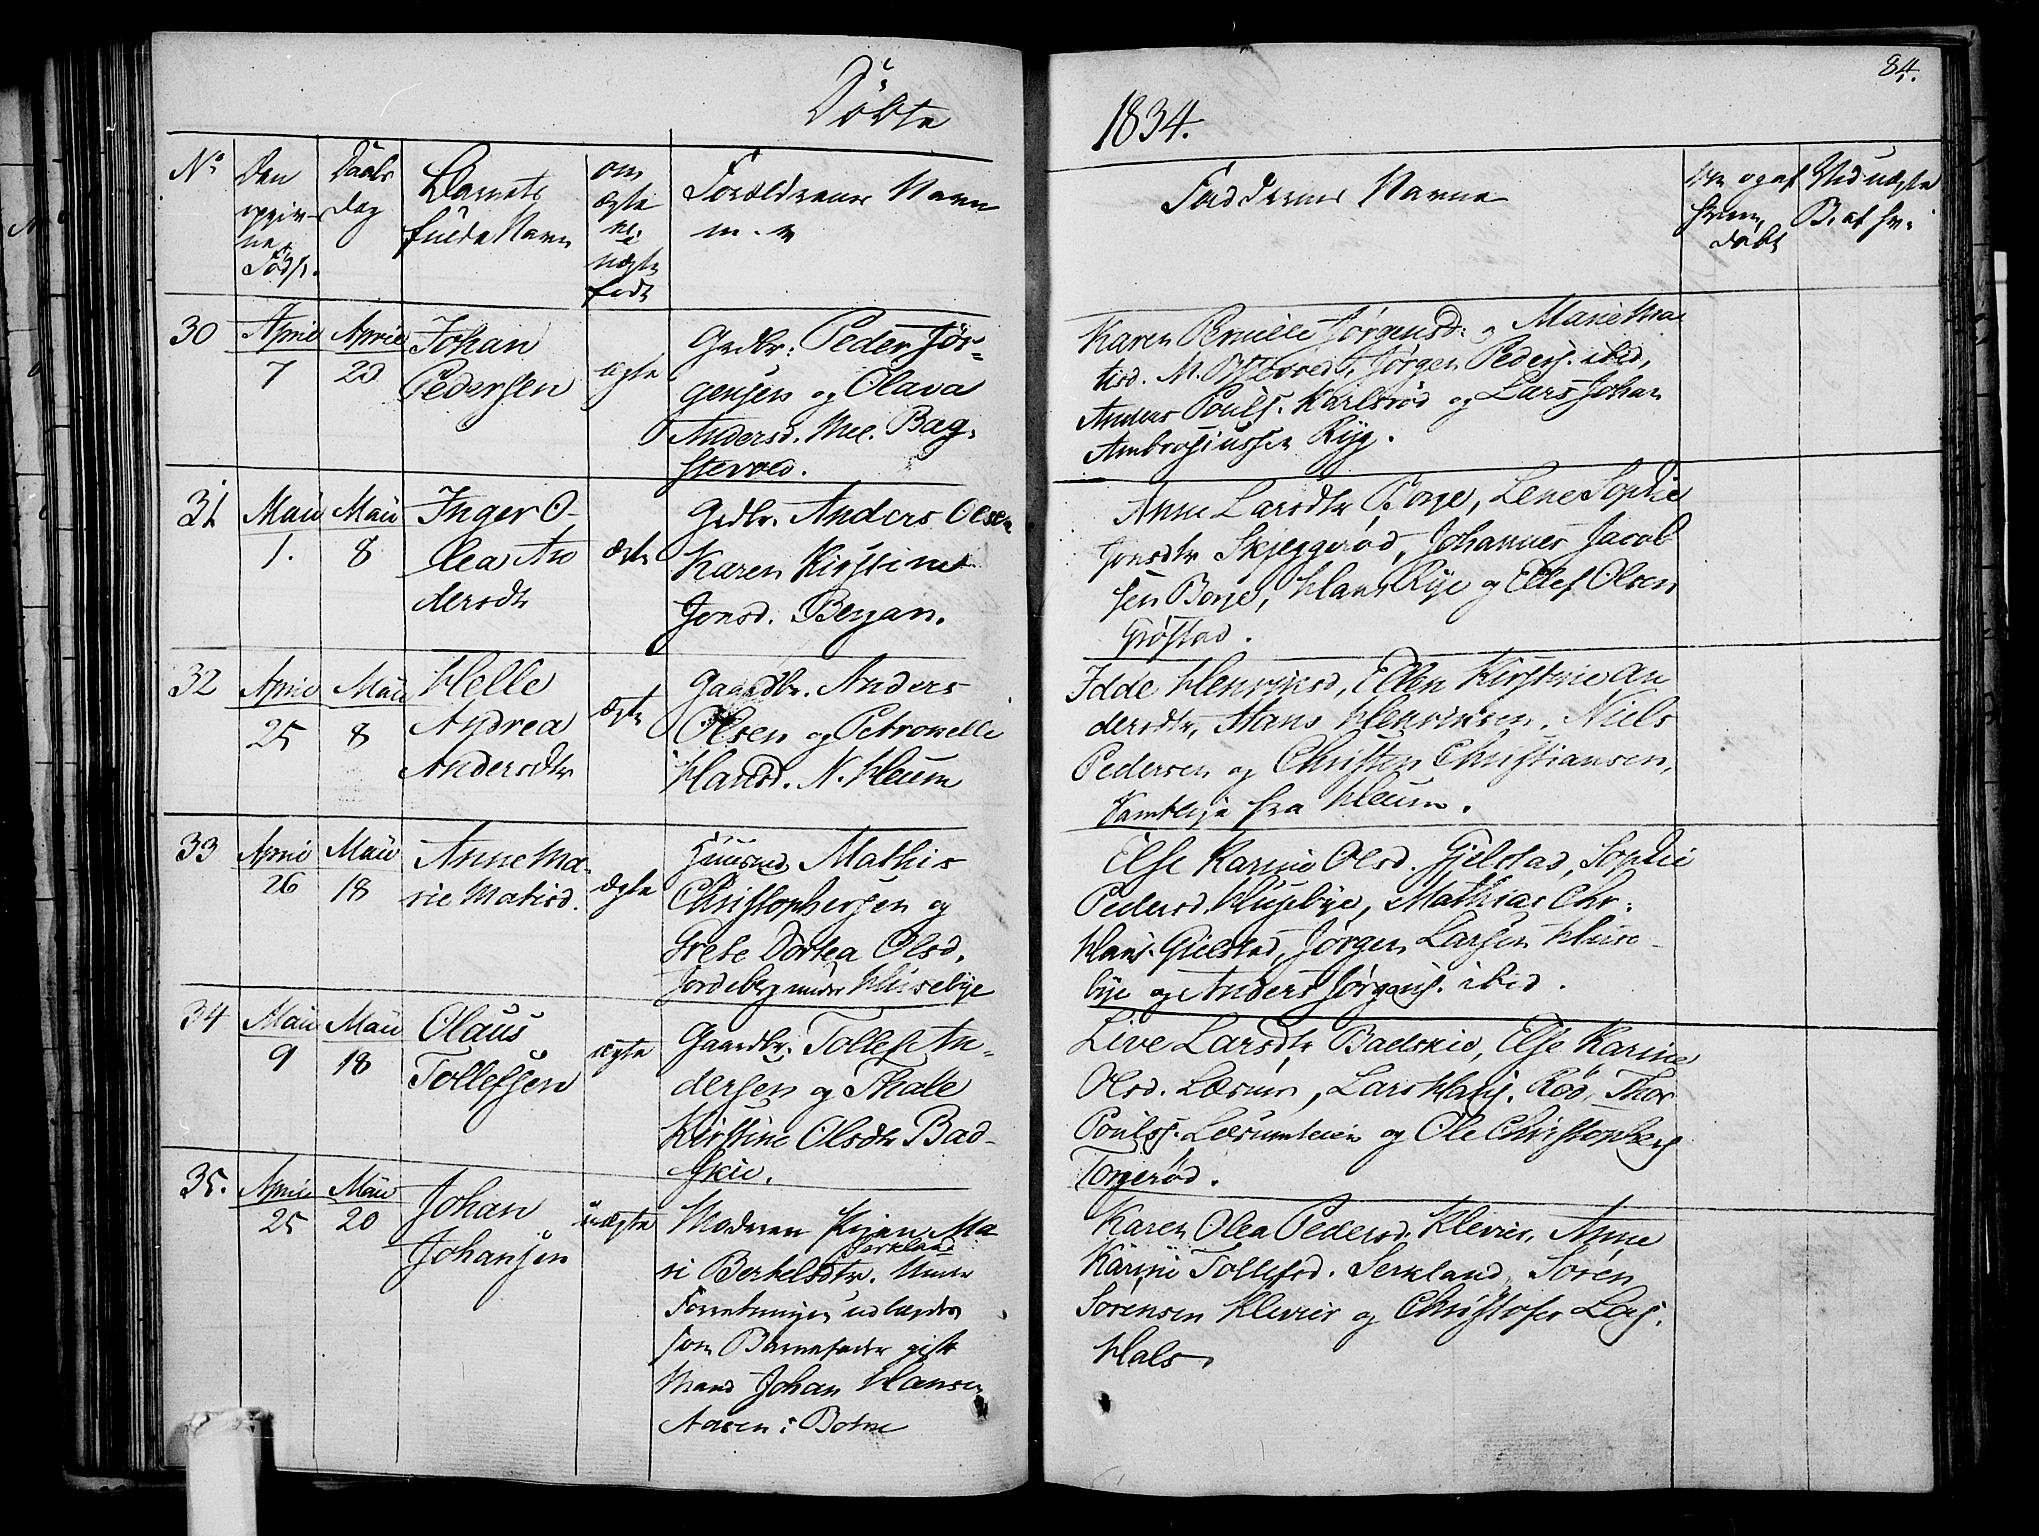 84.
Döbte
1834.
No
Den
opgiv-
ne
Föds.
Daabs
dag
Barnets
fulde Navn
om
ægte
el.
uægte
født
Forældrenes Navn
m. v
Faddernes Navne
Naar og af
hvem
døbt
Ved uægte
B. at
30
April
7
April
20
Johan
Pedersen
ægte
Grdbr: Peder Jör-
gensen og Olava
Andersd. Mel. Bag-
Karen Pernille Jørgensd: og Marie Ma
tisd. M. Jørgen Peders. ibid,
Anders Pouls. Karlsrød og Lars Johan
Ambrosiussen Ryg.
31
Maii
1.
Maii
8
Inger O-
lea An
dersdtr
ægte
Grdbr. Anders Olsen
Karen Kirstine
Jonsd. Bergan.
Anne Larsdtr Borje, Lene Sophie
Jonsdtr Skjeggerød, Johannes Jacob
sen Borje, Hans Rye og Ellef Olsen
Grøstad.
32
April
25
Maii
8
Helle
Andrea
Andersdtr
ægte
Gaardbr. Anders
Olsen og Petronelle
Hansd. N. Heum
Idde Henriksd, Ellen Kirstine An
dersdtr, Hans Henriksen, Niels
Pedersen og Christen Christiansen,
samtlige fra Heum.
33
April
26
Maii
18
Anne Ma-
rie Matisd.
ægte
Huusmd Mathis
Christophersen og
Grete Dortea Olsd.
Jordeberg under Husebye
Else Karine Olsd. Gjelstad, Sophie
Pedersd. Husebye, Mathias Chr.
Hans. Gjelstad, Jørgen Larsen Huse-
bye og Anders Jørgens. ibid.
34
Maii
9
Maii
18
Olaus
Tollefsen
ægte
Gaardbr. Tollef An-
dersen og Thale
Kirstine Olsdtr Bad-
skie.
Live Larsdtr Badskie, Else Karine
Olsd. Læsum, Lars Hans. Rød, Thor
Poulss. Læsumteien og Ole Christophers
Torgerød.
35.
April
25
Maii
20
Johan
Johansen
uægte
Moderen Kjen Ma
ri Bertelsdtr. Serkland Under
Forretningen udlagdes
som Barnefader gift
Mand Johan Hansen
Aasen i Botne
Karen Olea Pedersd. Klevier, Anne
Karine Tollefsd. Serkland, Søren
Sørensen Klevier og Christofer Lars.
Hals